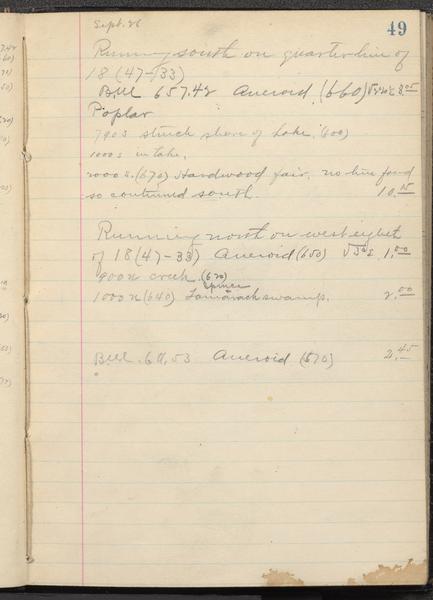 Sept. 26
49
Running south on quarter line of
18 (47-33)
B.M. 657.42 Aneroid (660) 8.05
Poplar
790 S struck shore of Lake, (600)
1000 S in lake,
2000 S. (670) Hardwood fair, no line found
so continued south. 10.15
Running north on west eighth
of 18 (47-33) Aneroid (650) 1.00
900 N creek (620)
Spruce
1000 N (640) Tamarack swamp. 2.00
Aneroid (670) 2.45